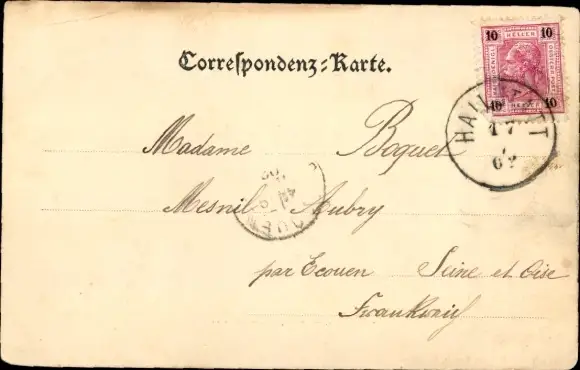 Correspondenz-Karte.
10 HELLER 10
10 HELLER 10
HALLSTATT
17
7
02
Madame Boquet
Mesnil Aubry
par Ecouen Seine et Oise
Frankreich